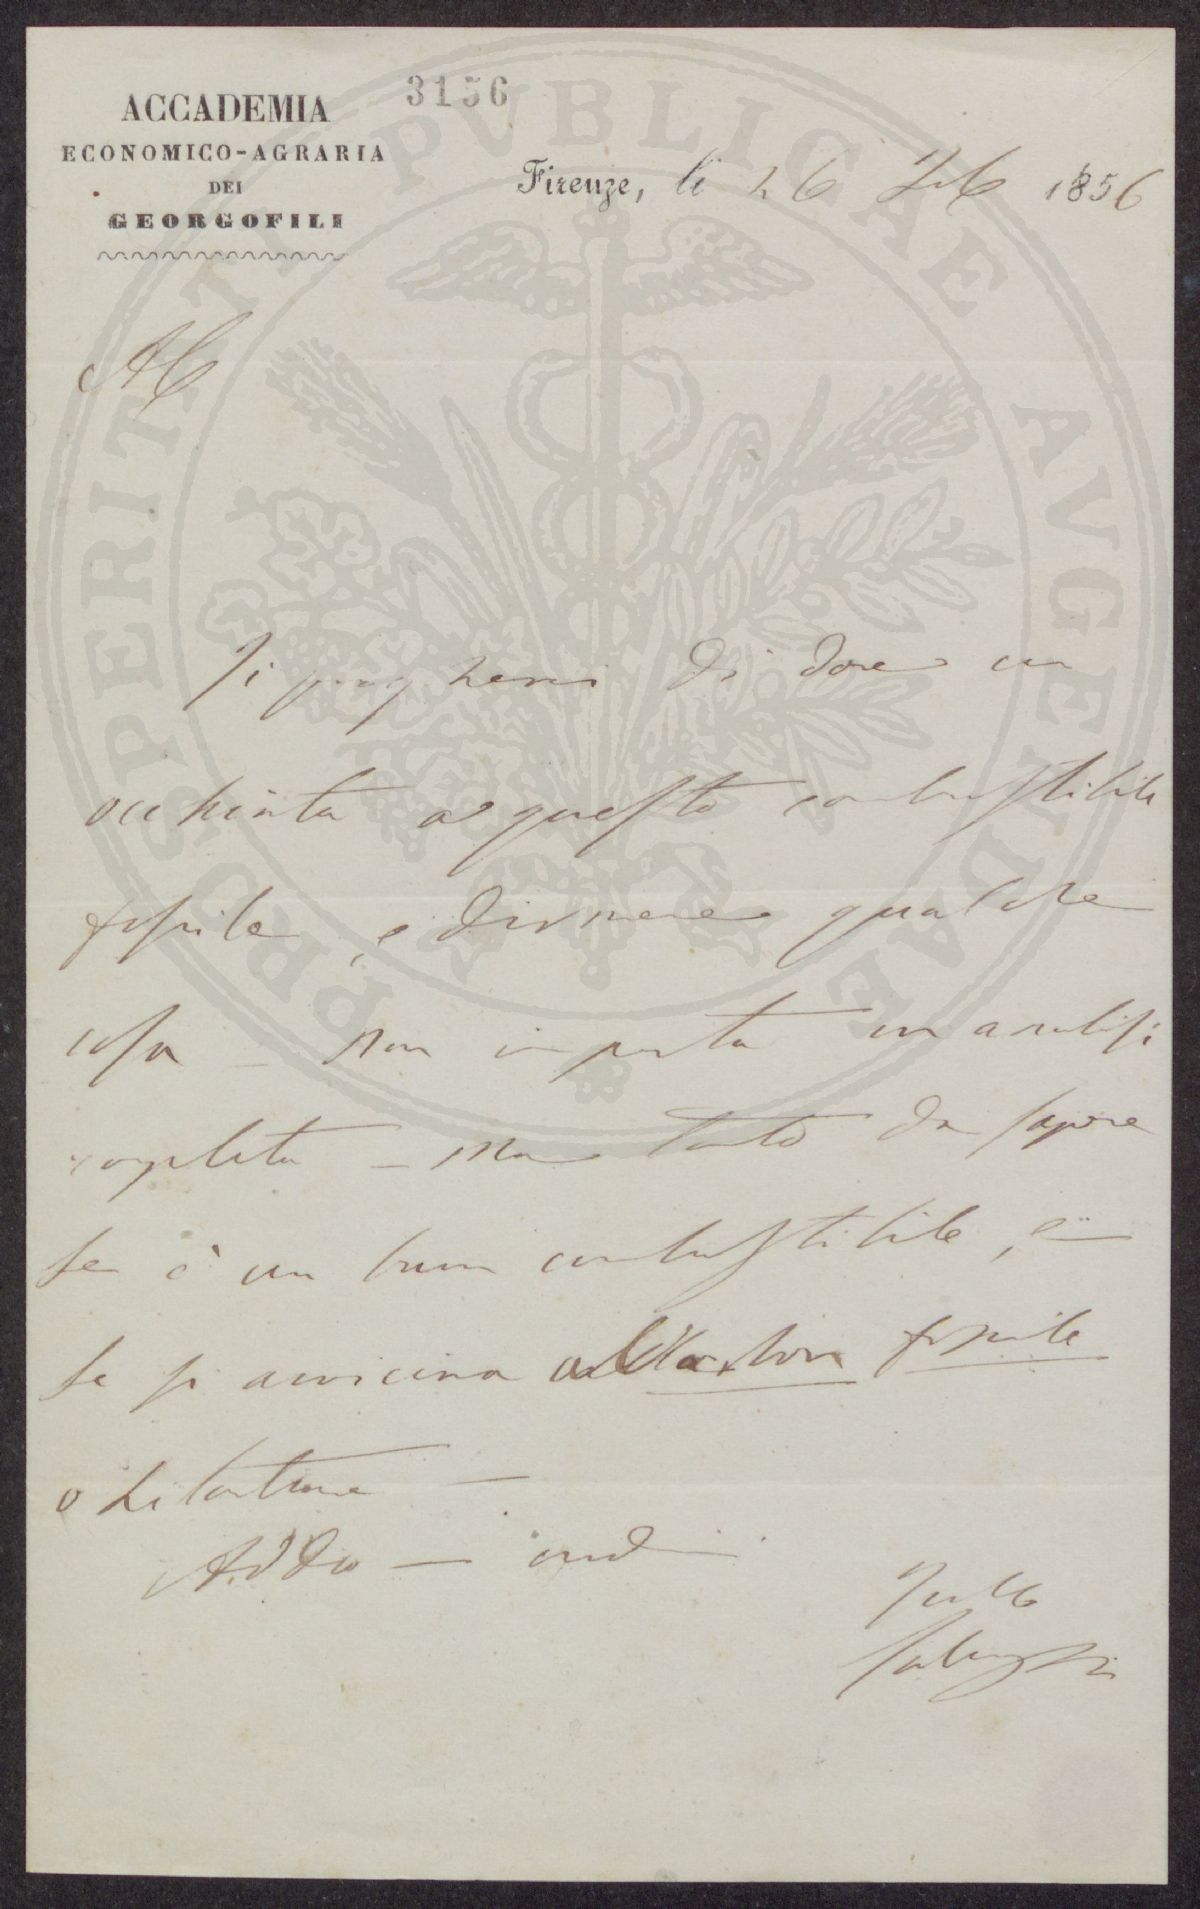 3156
ACCADEMIA
ECONOMICO-AGRARIA
DEI
GEORGOFILI
Firenze, li 26 1856
PROSPERITATI PVBLICAE AVGENDAE
AC
Ti pregherei di dare un
occhiata a questo combustibile
fossile, e dirmene qualche
cosa - Non importa un analisi
completa - Ma tanto da sapere
se è un buon combustibile, e
se si avvicina al Carbon fossile
o Litantrace -
Addio -